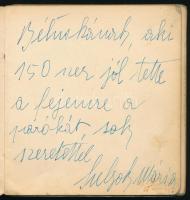 Béluskának, aki
150 szer jól tette
a fejemre a
parókát, sok
szeretettel
Sulyok Mária